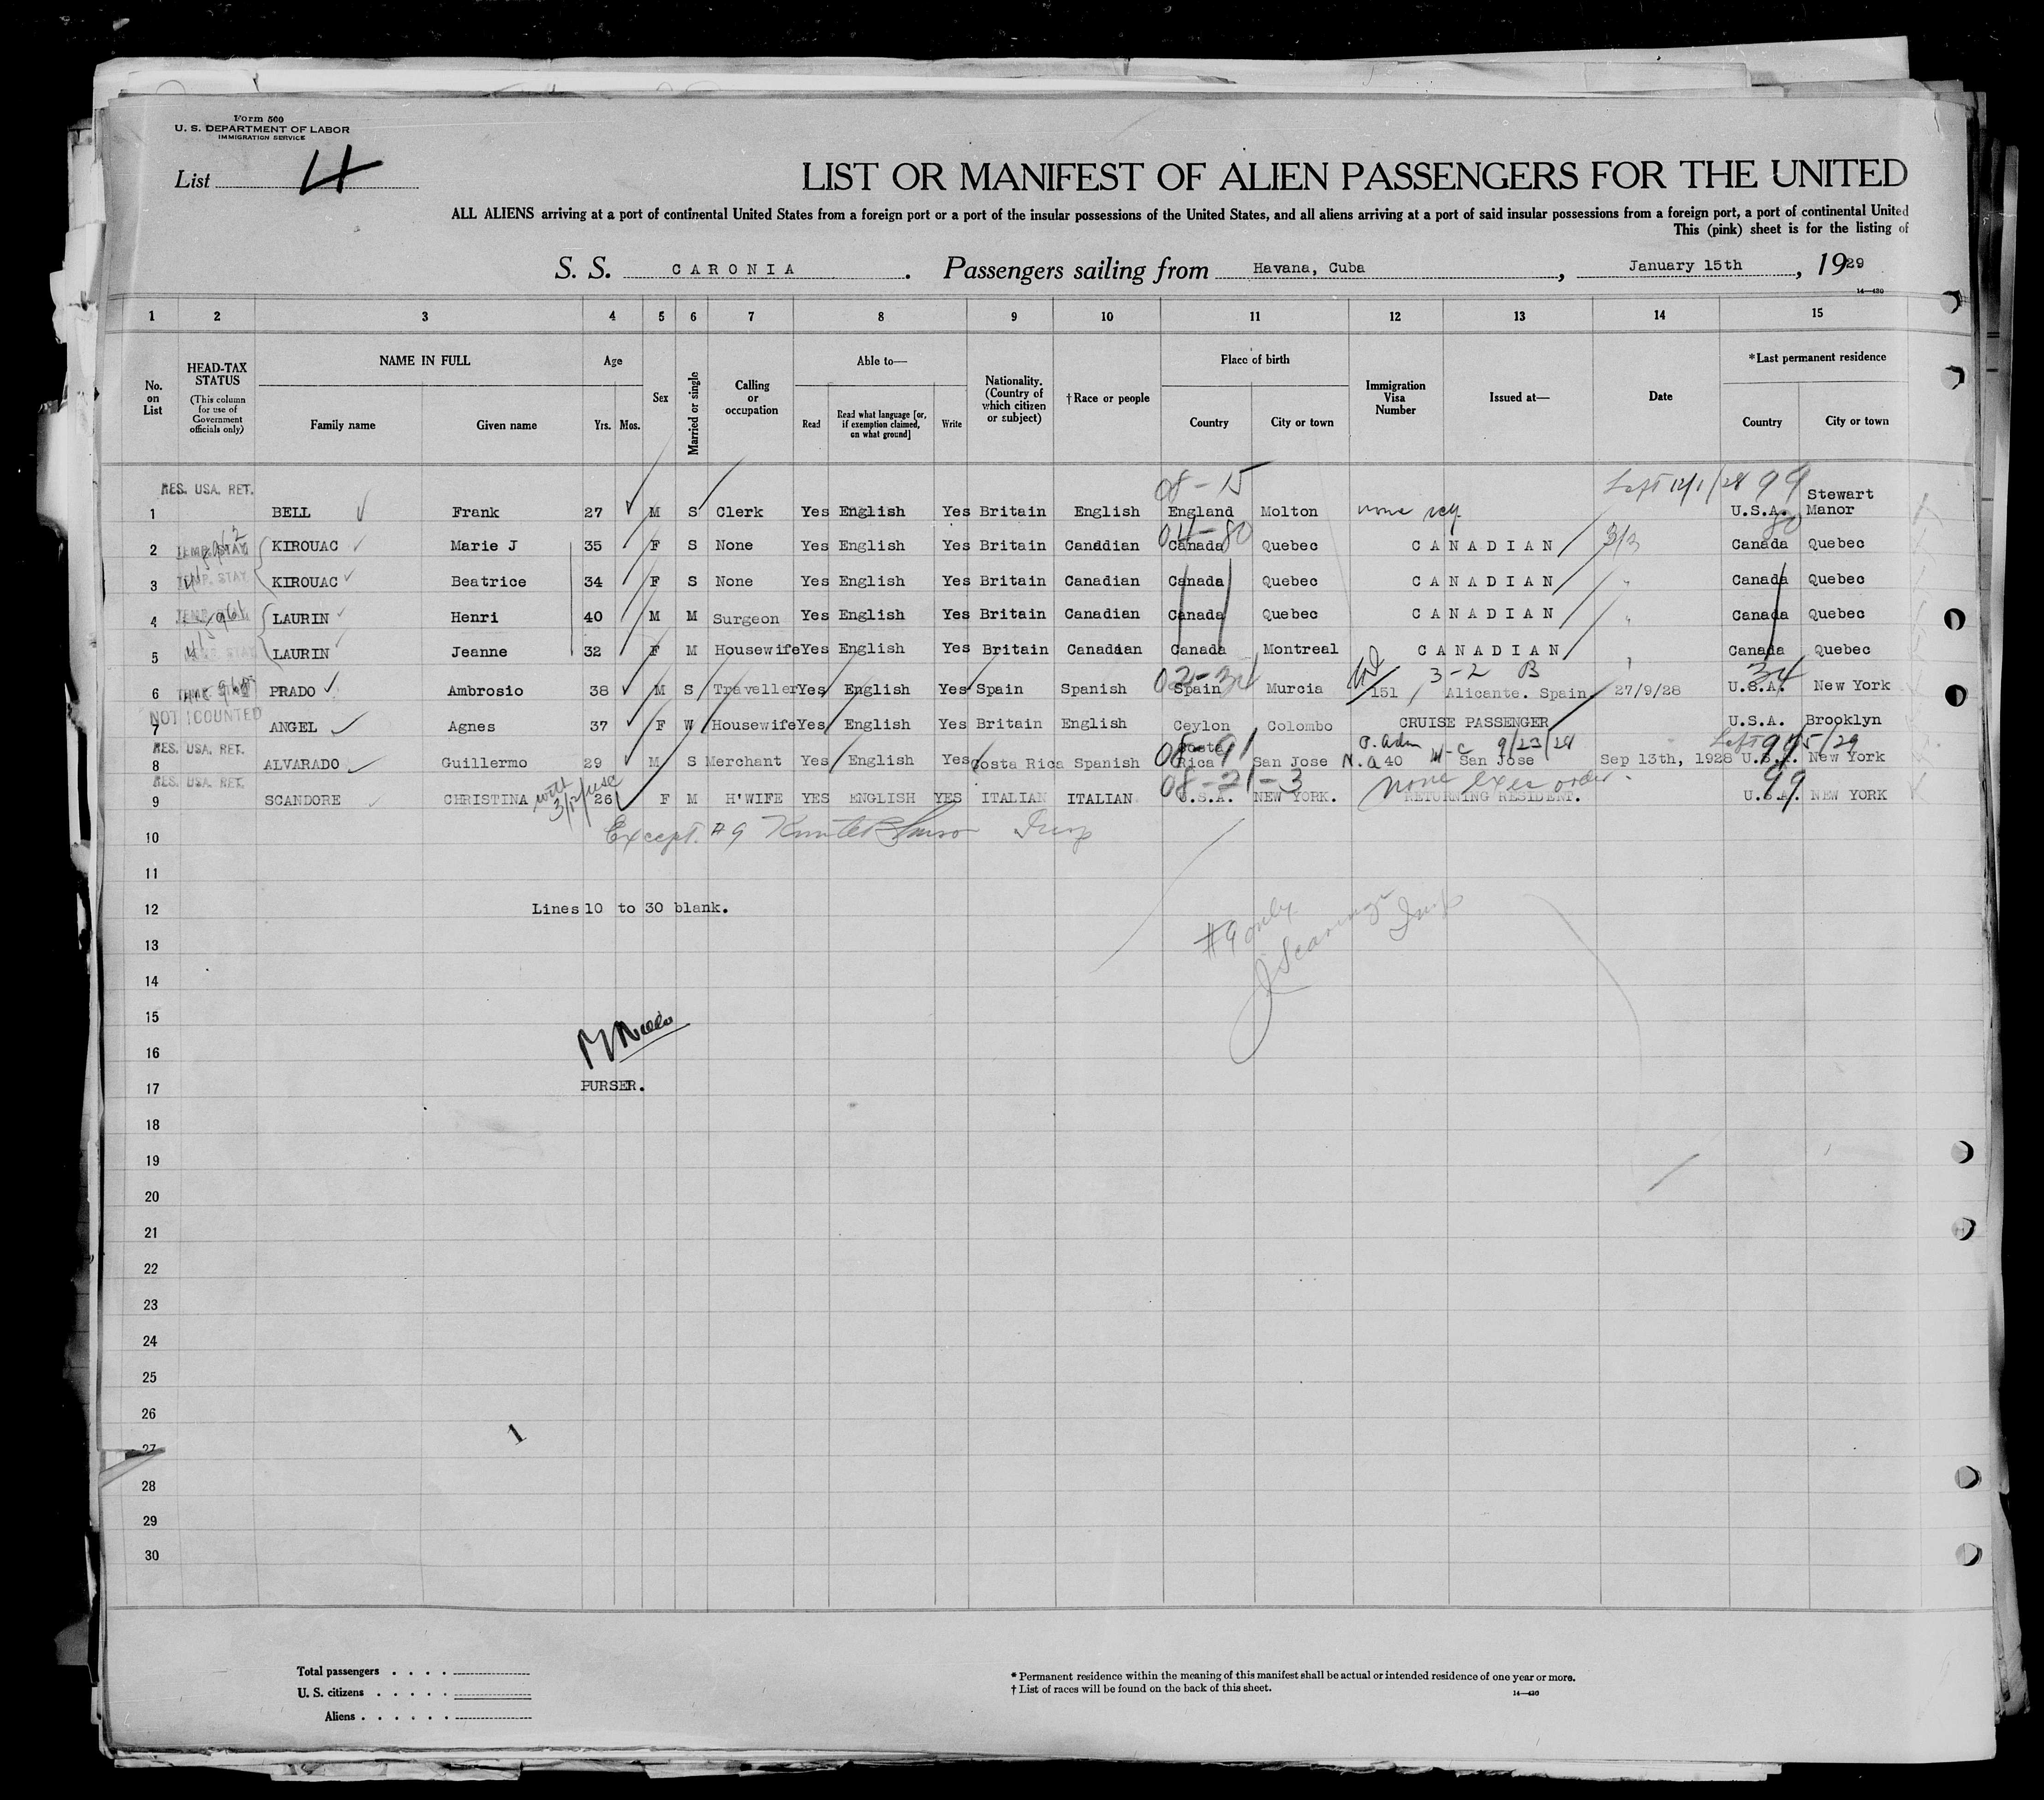 Form 500
U. S. DEPARTMENT OF LABOR
IMMIGRATION SERVICE
List 4
LIST OR MANIFEST OF ALIEN PASSENGERS FOR THE UNITED
ALL ALIENS arriving at a port of continental United States from a foreign port or a port of the insular possessions of the United States, and all aliens arriving at a port of said insular possessions from a foreign port, a port of continental United
This (pink) sheet is for the listing of
S. S. CARONIA. Passengers sailing from Havana, Cuba, January 15th, 1929
14—430
1 2 3 4 5 6 7 8 9 10 11 12 13 14 15
No. on List
HEAD-TAX STATUS (This column for use of Government officials only)
NAME IN FULL
Family name Given name
Age
Yrs. Mos.
Sex
Married or single
Calling or occupation
Able to—
Read Read what language [or, if exemption claimed, on what ground] Write
Nationality. (Country of which citizen or subject)
† Race or people
Place of birth
Country City or town
Immigration Visa Number
Issued at—
Date
*Last permanent residence
Country City or town
08-15 Left 12/1/28 99
RES. USA. RET.
1 BELL Frank 27 M S Clerk Yes English Yes Britain English England Molton U.S.A. Stewart Manor
04-80 80
2 TEMP. STAY KIROUAC Marie J 35 F S None Yes English Yes Britain Canadian Canada Quebec CANADIAN 3/3 Canada Quebec
3 TEMP. STAY KIROUAC Beatrice 34 F S None Yes English Yes Britain Canadian Canada Quebec CANADIAN " Canada Quebec
4 LAURIN Henri 40 M M Surgeon Yes English Yes Britain Canadian Canada Quebec CANADIAN " Canada Quebec
5 LAURIN Jeanne 32 F M Housewife Yes English Yes Britain Canadian Canada Montreal CANADIAN Canada Quebec
02-34 3-2 B 34
6 PRADO Ambrosio 38 M S Traveller Yes English Yes Spain Spanish Spain Murcia 151 Alicante. Spain 27/9/28 U.S.A. New York
NOT COUNTED
7 ANGEL Agnes 37 F W Housewife Yes English Yes Britain English Ceylon Colombo CRUISE PASSENGER U.S.A. Brooklyn
RES. USA. RET.
08-91 9/23/28 Left
8 ALVARADO Guillermo 29 M S Merchant Yes English Yes Costa Rica Spanish Costa Rica San Jose N.a 40 San Jose Sep 13th, 1928 U.S.A. New York
RES. USA. RET.
08-21-3 none exec order. 99
9 SCANDORE CHRISTINA 26 F M H'WIFE YES ENGLISH YES ITALIAN ITALIAN U.S.A. NEW YORK. RETURNING RESIDENT. U.S.A. NEW YORK
10 Except #9 Insp
11
12 Lines 10 to 30 blank.
#9 only
Insp
13
14
15
16
17 PURSER.
18
19
20
21
22
23
24
25
26
27
28
29
30
1
Total passengers
U. S. citizens
Aliens
* Permanent residence within the meaning of this manifest shall be actual or intended residence of one year or more.
† List of races will be found on the back of this sheet.
14—430